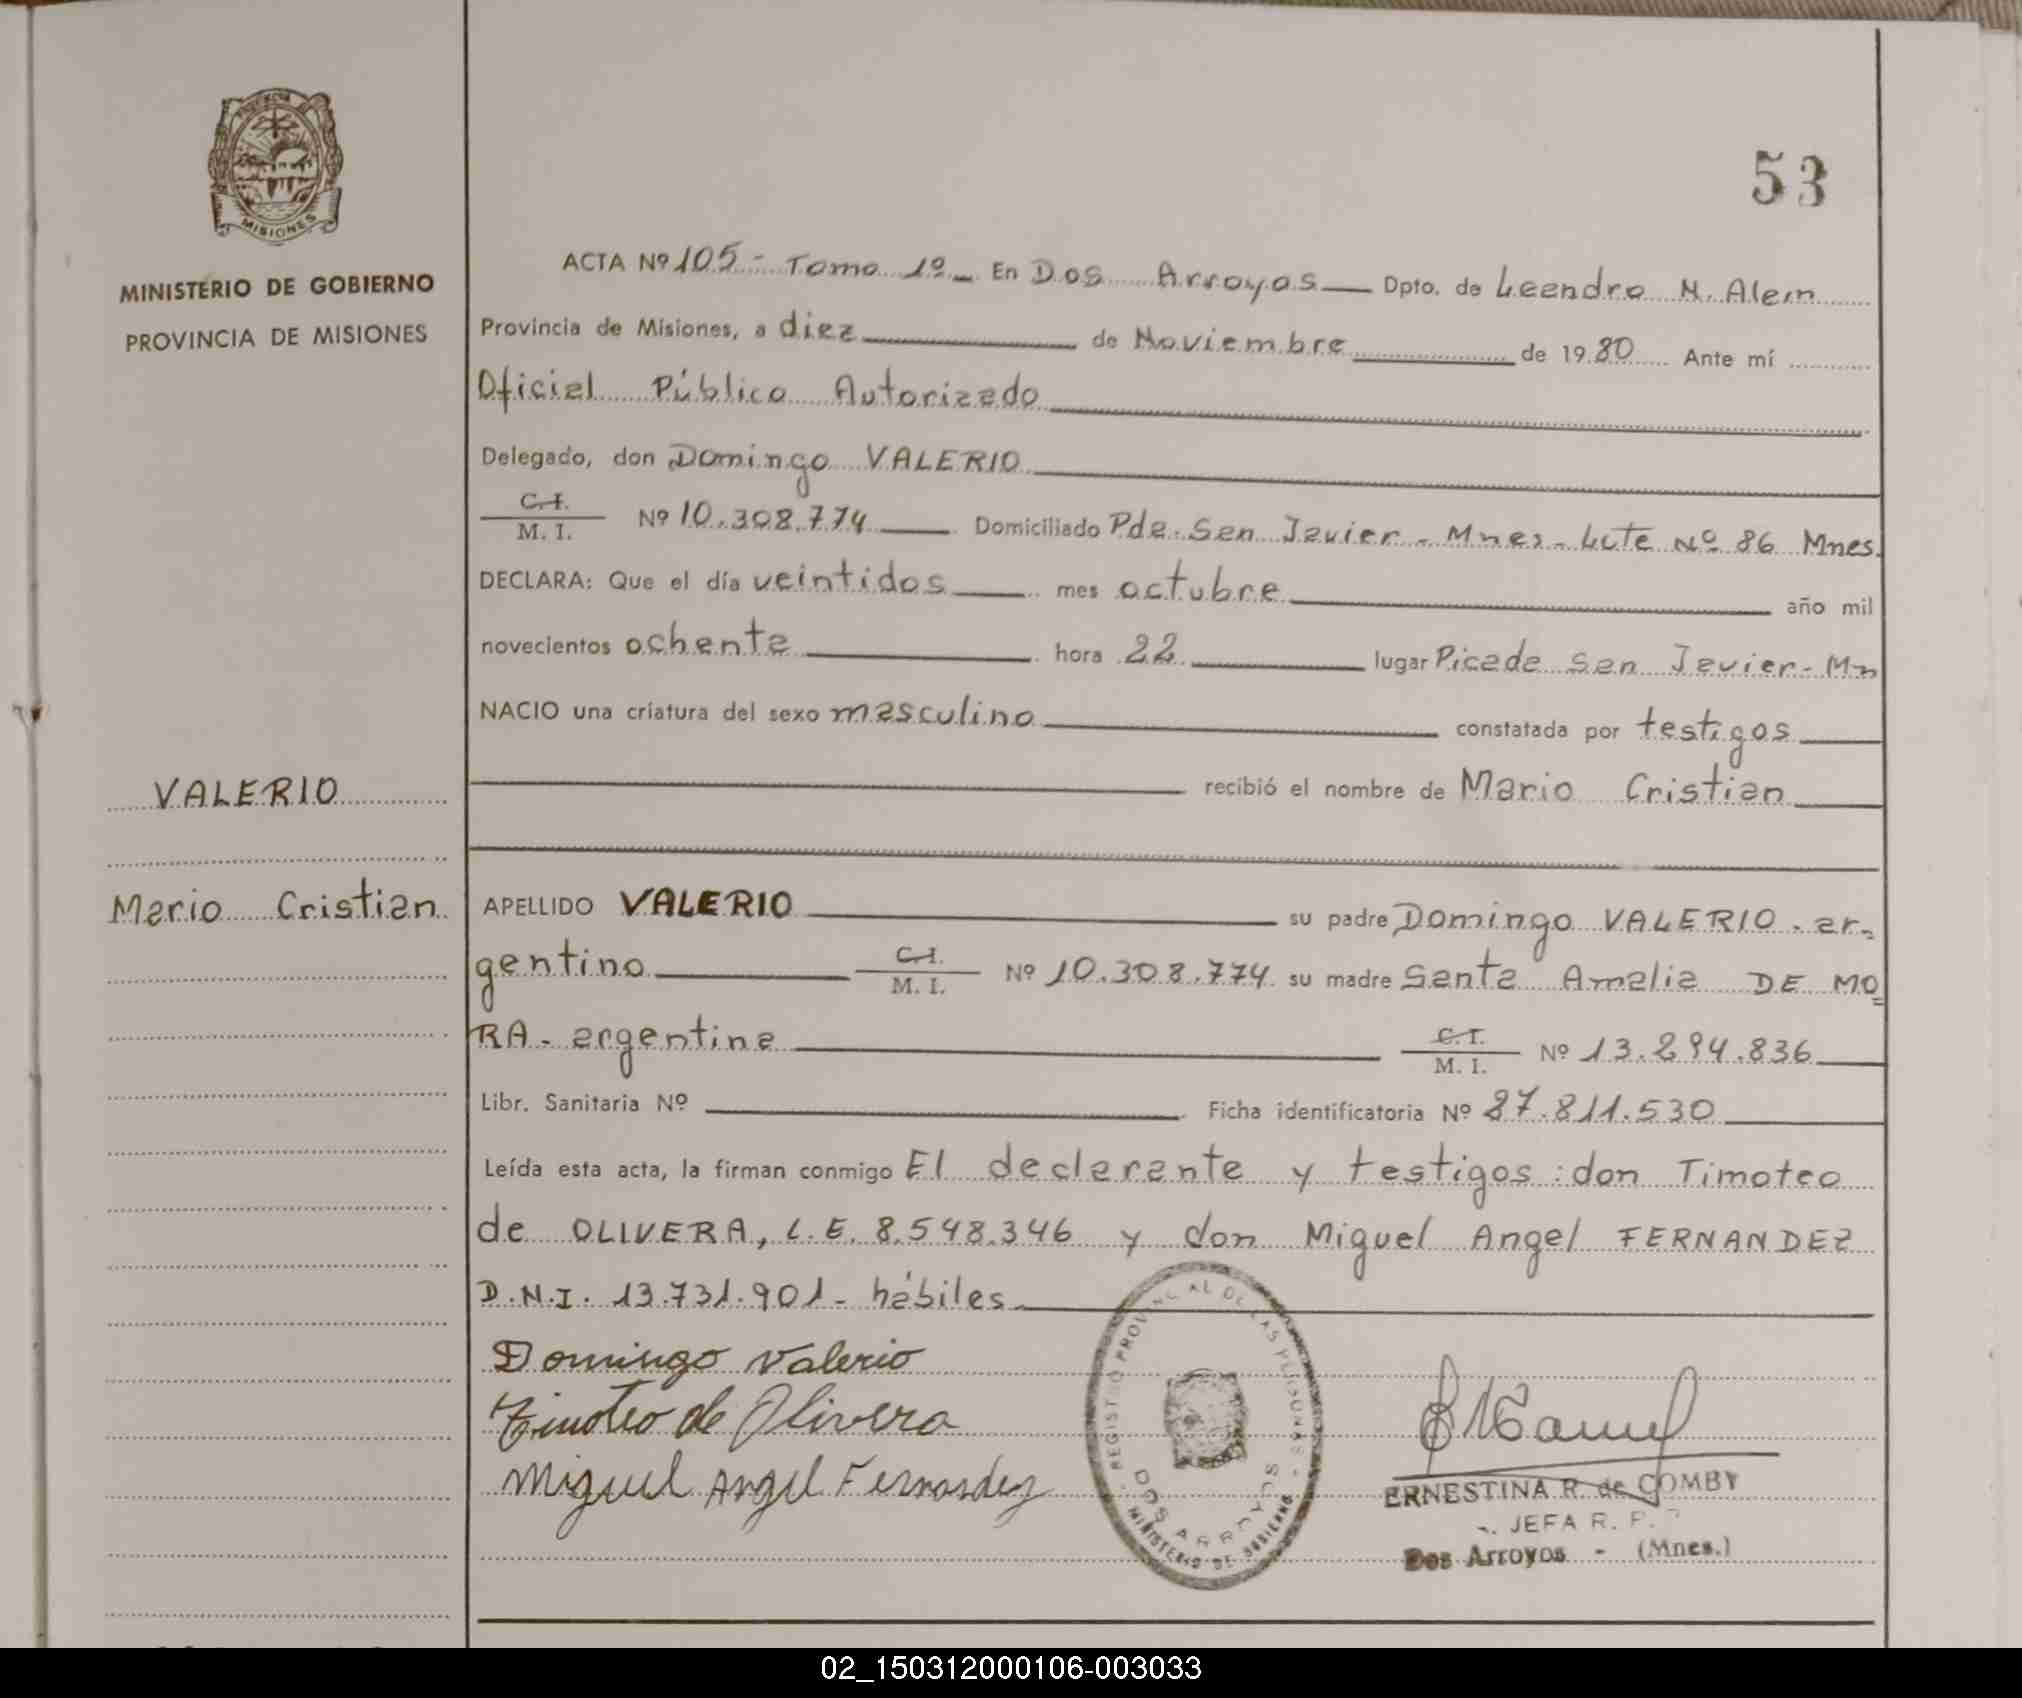 PROVINCIA
MISIONES
MINISTERIO DE GOBIERNO
PROVINCIA DE MISIONES
VALERIO
Mario Cristian
53
ACTA Nº 105 - Tomo 1º - En Dos Arroyos Dpto. de Leandro N. Alem
Provincia de Misiones, a diez de Noviembre de 1980 Ante mí
Oficial Público Autorizado
Delegado, don Domingo VALERIO
C.I.
M. I. Nº 10.308.774 Domiciliado Pda. San Javier - Mnes - Lote Nº 86 Mnes.
DECLARA: Que el día veintidos mes octubre año mil
novecientos ochenta hora 22 lugar Picada San Javier - Mn
NACIO una criatura del sexo masculino constatada por testigos
recibió el nombre de Mario Cristian
APELLIDO VALERIO su padre Domingo VALERIO - ar-
gentino C.I.
M. I. Nº 10.308.774 su madre Santa Amalia DE MO
RA - argentina C.I.
M. I. Nº 13.294.836
Libr. Sanitaria Nº Ficha identificatoria Nº 27.811.530
Leída esta acta, la firman conmigo El declarante y testigos: don Timoteo
de OLIVERA, L.E. 8.548.346 y don Miguel Angel FERNANDEZ
D.N.I. 13.731.901 - hábiles
Domingo Valerio
Timoteo de Olivera
Miguel Angel Fernandez
REGISTRO PROVINCIAL DE LAS PERSONAS
DOS ARROYOS
MINISTERIO DE GOBIERNO
ERNESTINA R. de COMBY
JEFA R. P.
Dos Arroyos - (Mnes.)
02_150312000106-003033